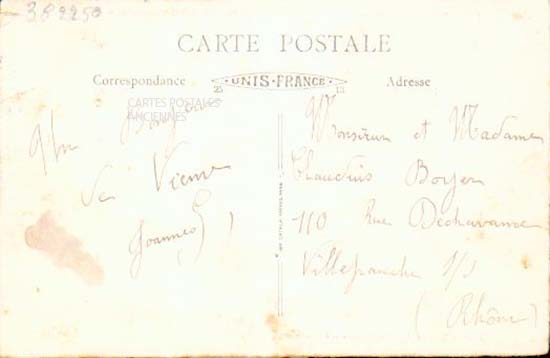 382250
CARTE POSTALE
Correspondance
25 UNIS-FRANCE 13
Adresse
CARTES POSTALES
ANCIENNES
Un Bonjour
de Vienne
Joannes
Monsieur et Madame
Claudius Boyer
110 Rue Dechavanne
Villefranche s/s
(Rhône)